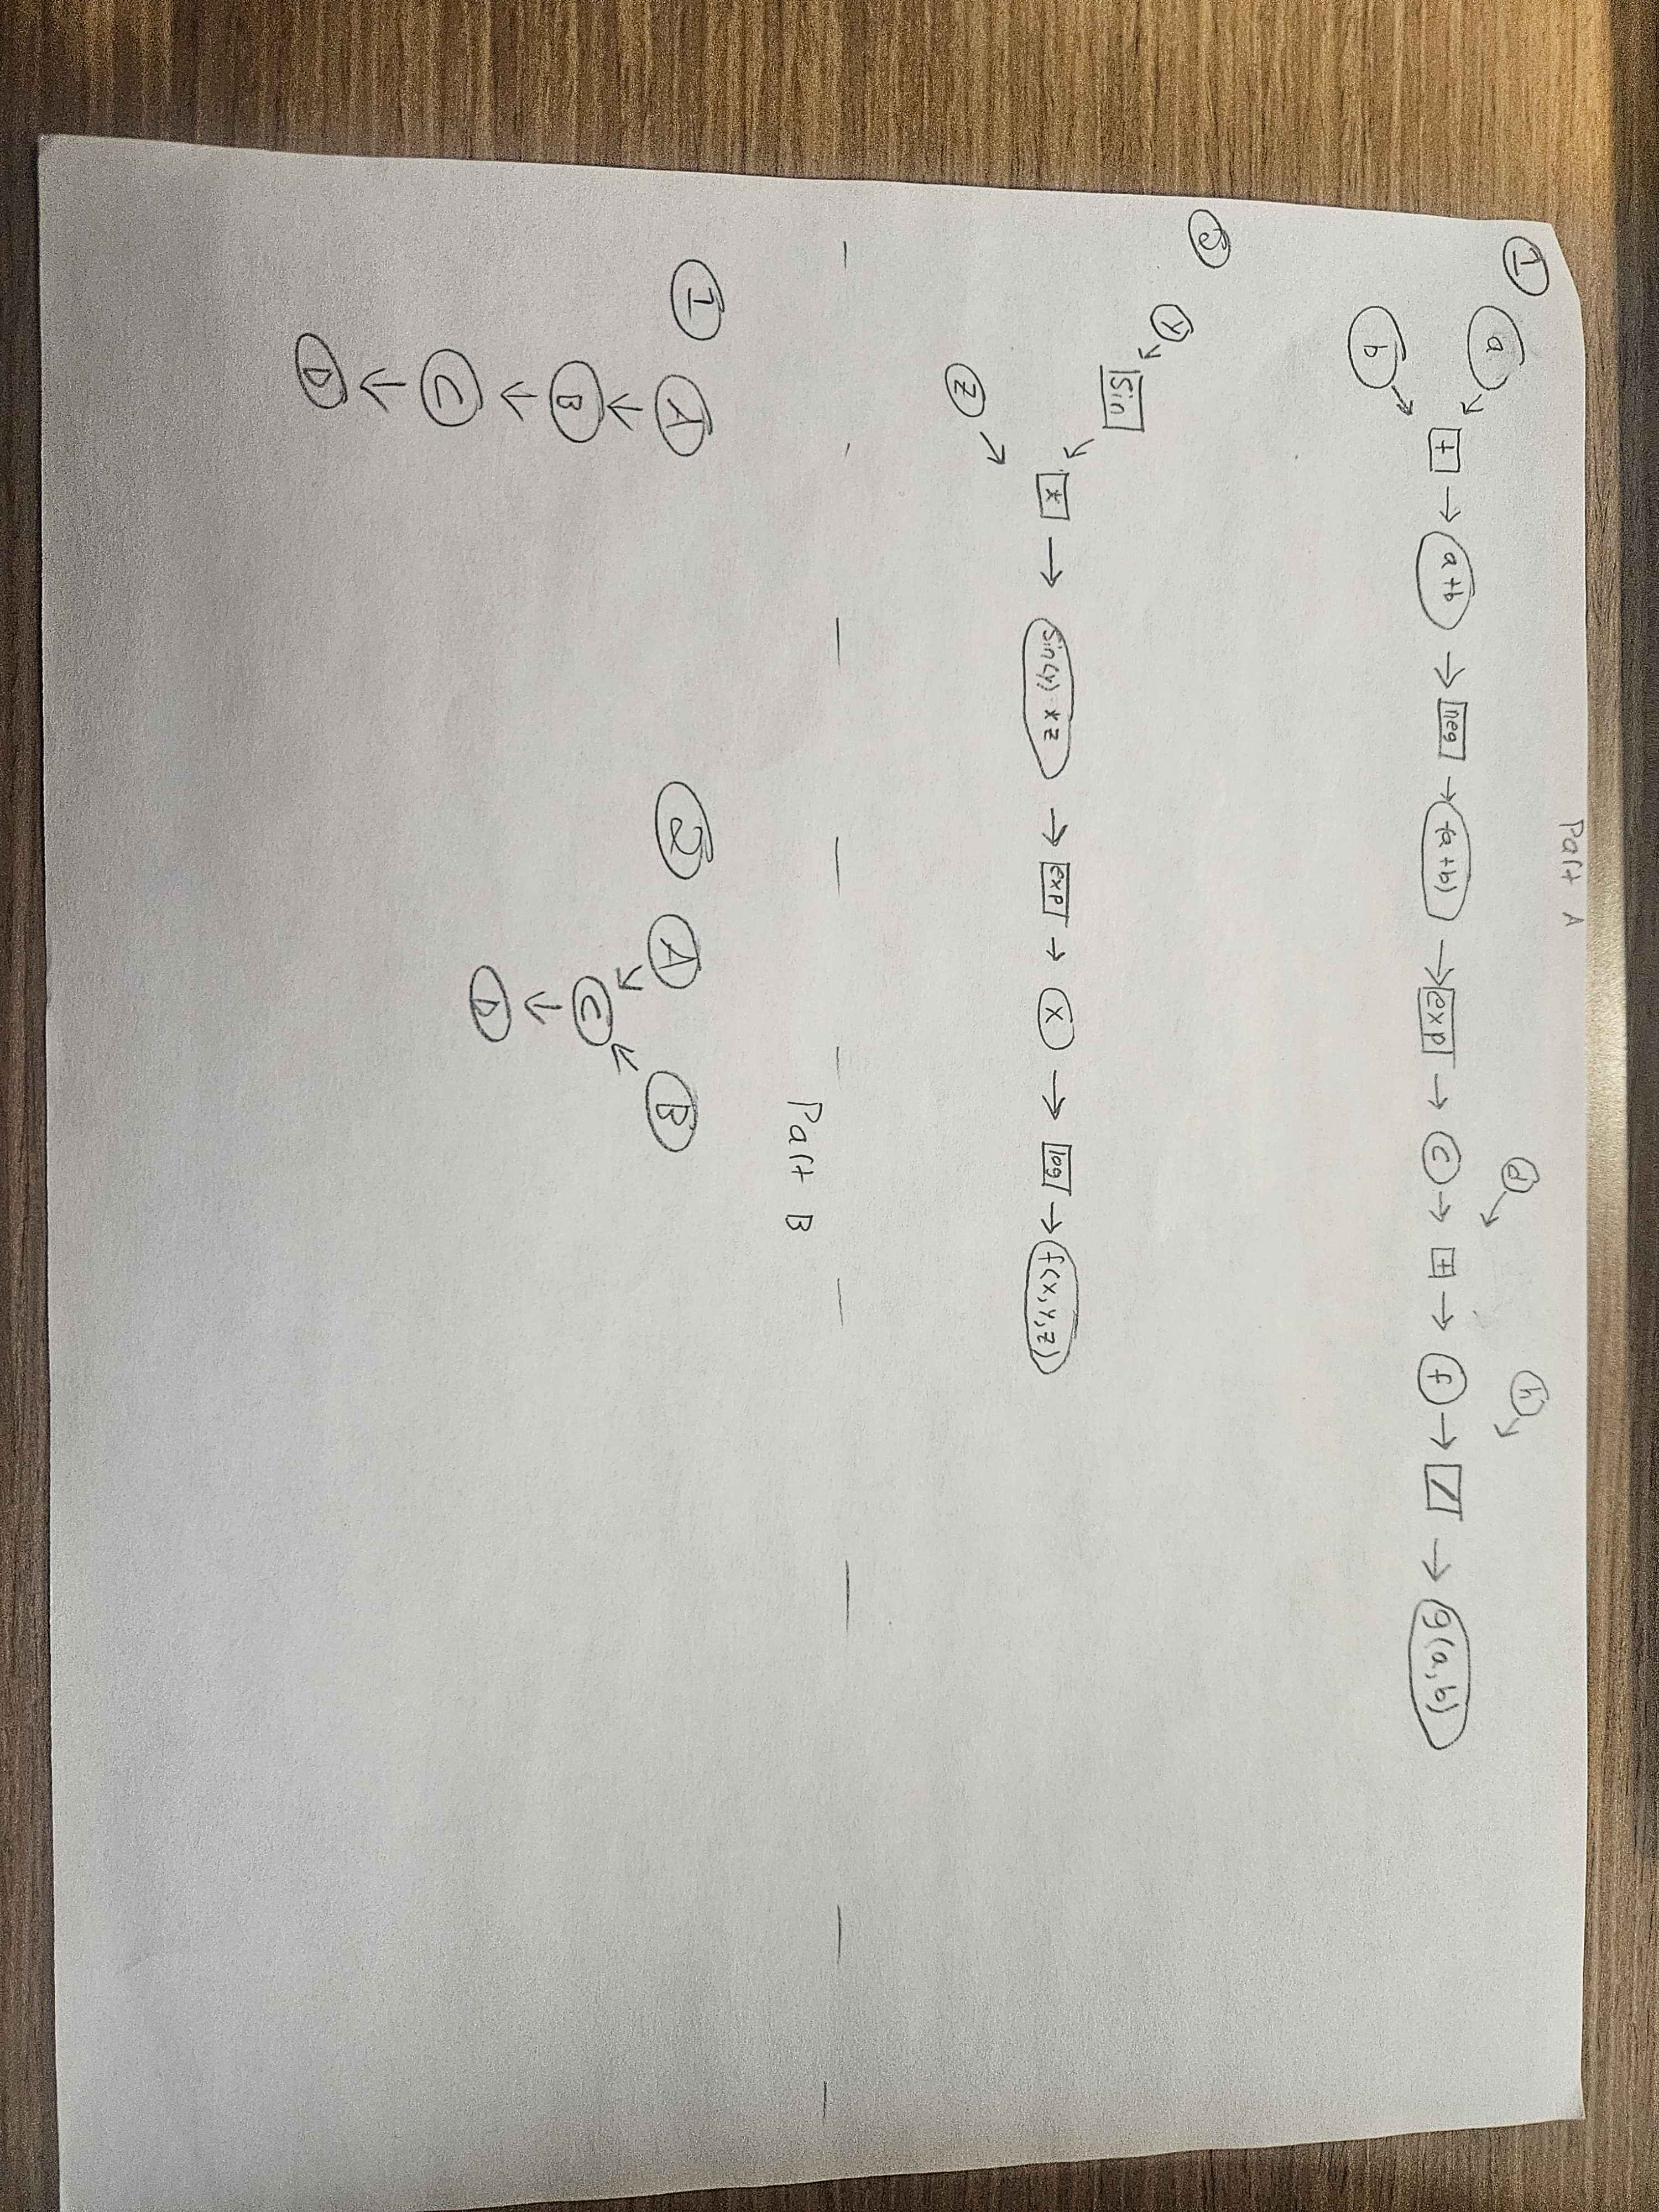 Part A
1
a
b
+ → a+b → neg → -(a+b) → exp → c → + → f → / → g(a,b)
d
h
y
sin
z
* → sin(y) * z → exp → x → log → f(x,y,z)
Part B
1
A
B
C
D
2
A B
C
D